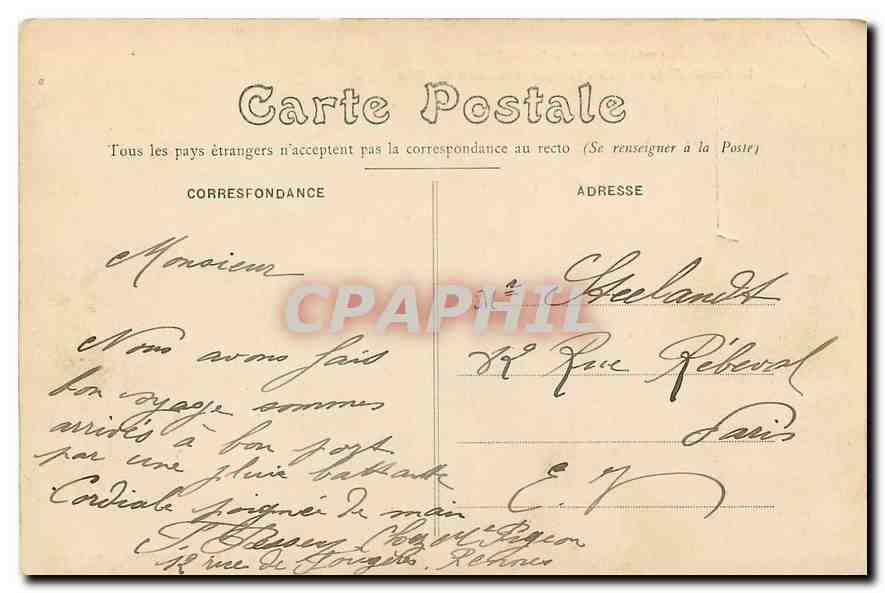 Carte Postale
Tous les pays étrangers n'acceptent pas la correspondance au recto (Se renseigner à la Poste)
CORRESPONDANCE
ADRESSE
Monsieur
Nous avons fais
bon voyage sommes
arrivés à bon port
par une pluie battante
Cordiale poignée de main
Chez Mr Pigeon
12 rue de Fougères. Rennes
Mr Steelandt
12 Rue Rébeval
Paris
E. V
CPAPHIL